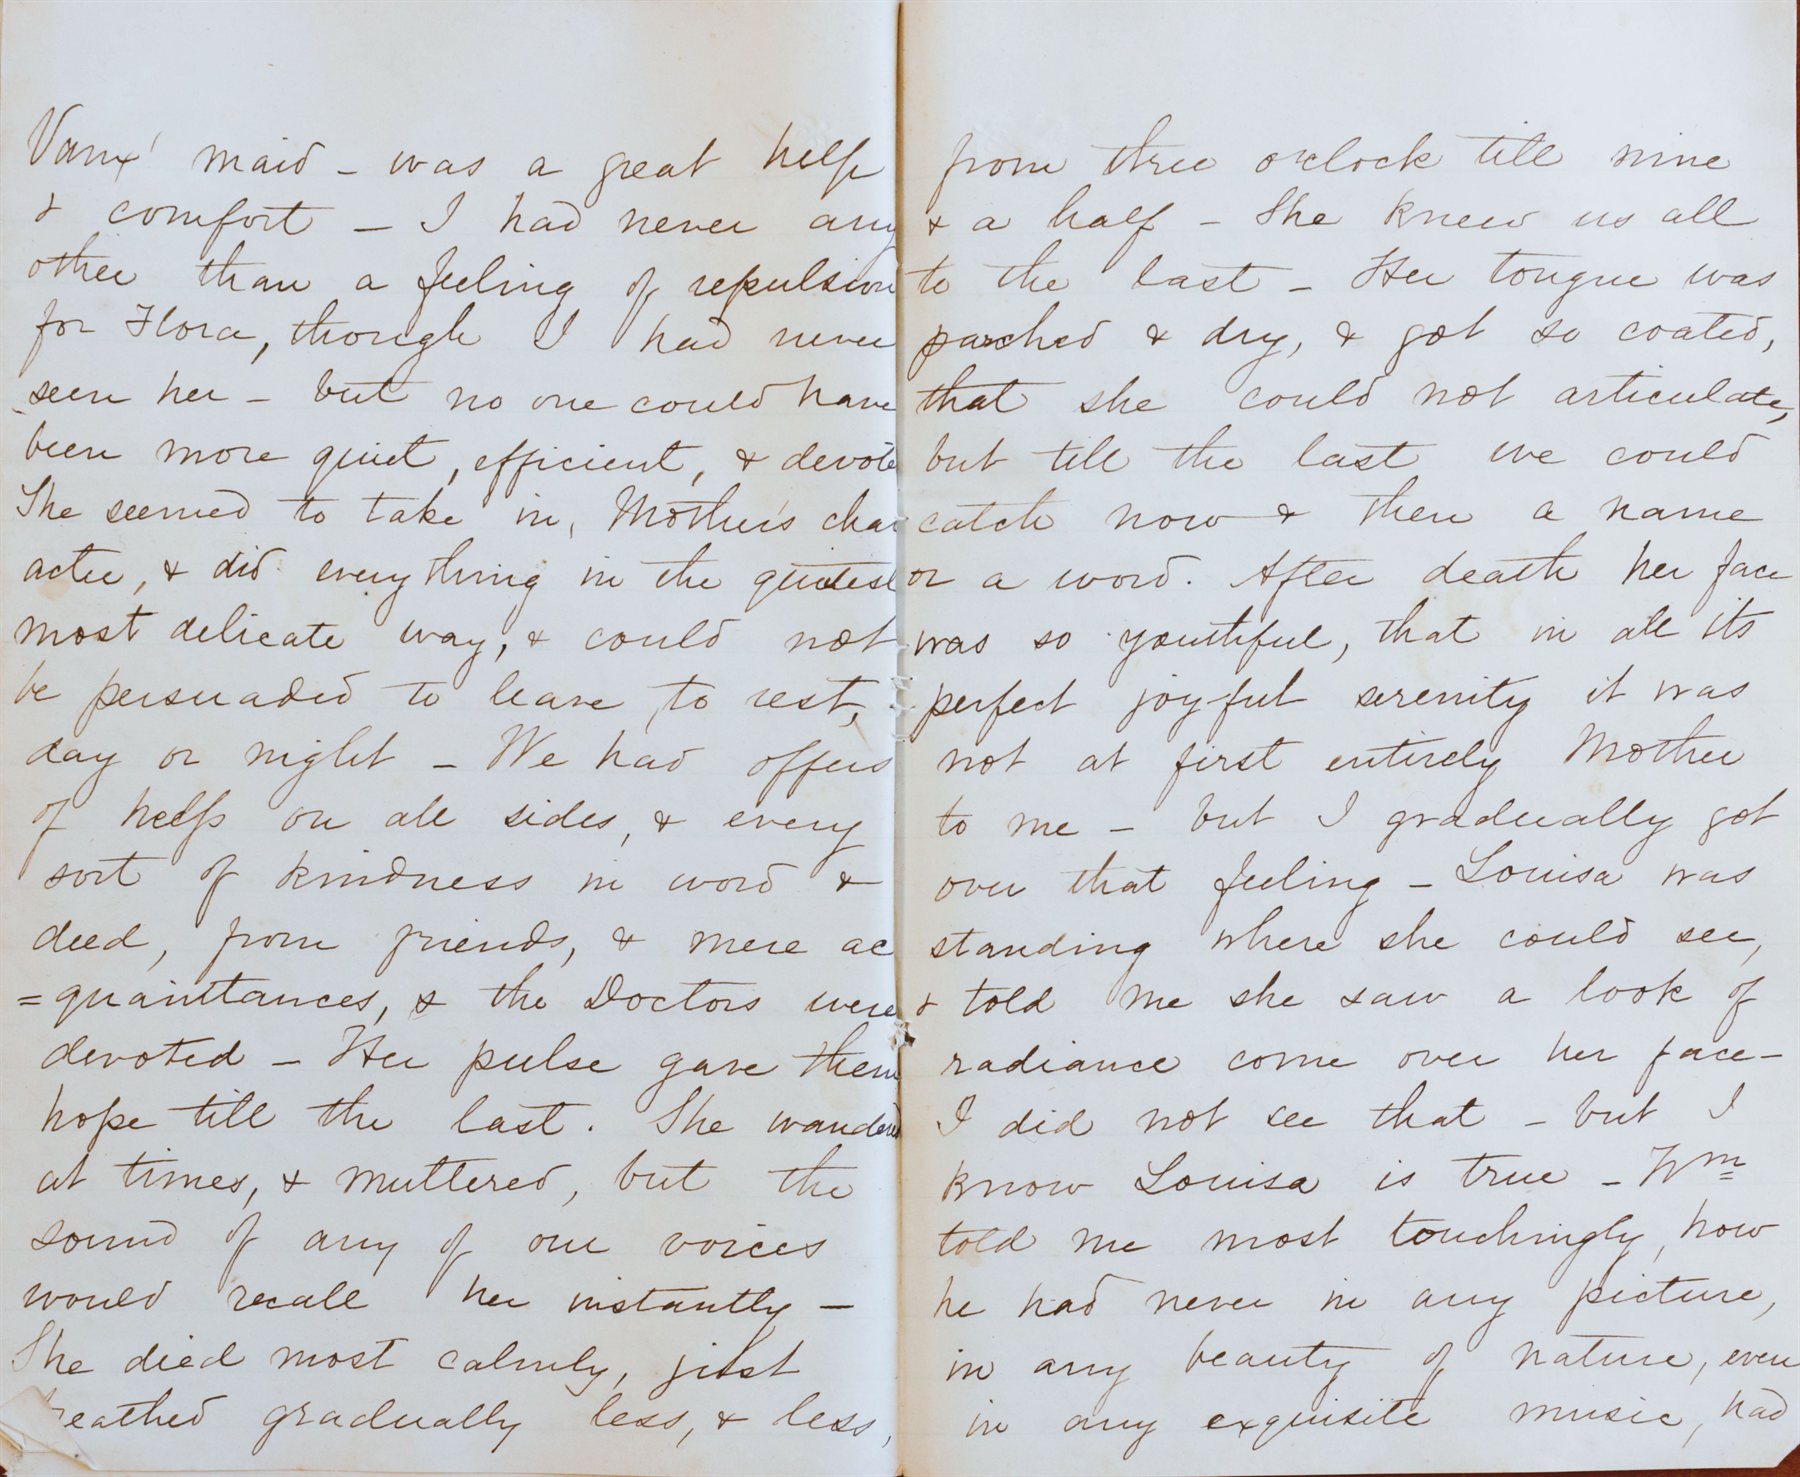 Vaux' maid - was a great help
& comfort - I had never any
other than a feeling of repulsion
for Flora, though I had never
seen her - but no one could have
been more quiet, efficient, & devote
She seemed to take in, Mother's char
acter, & did everything in the quietest
most delicate way, & could not
be persuaded to leave, to rest,
day or night - We had offers
of help on all sides, & every
sort of kindness in word &
deed, from friends, & mere ac
=quaintances, & the Doctors were
devoted - Her pulse gave them
hope till the last. She wandered
at times, & muttered, but the
sound of any of our voices
would recall her instantly -
She died most calmly, just
breathed gradually less, & less,
from three o'clock till nine
& a half - She knew us all
to the last - Her tongue was
parched & dry, & got so coated,
that she could not articulate,
but till the last we could
catch now & then a name
or a word. After death her face
was so youthful, that in all its
perfect joyful serenity it was
not at first entirely Mother
to me - but I gradually got
over that feeling - Louisa was
standing where she could see,
& told me she saw a look of
radiance come over her face -
I did not see that - but I
know Louisa is true - Wm
told me most touchingly, how
he had never in any picture,
in any beauty of nature, even
in any exquisite music, had